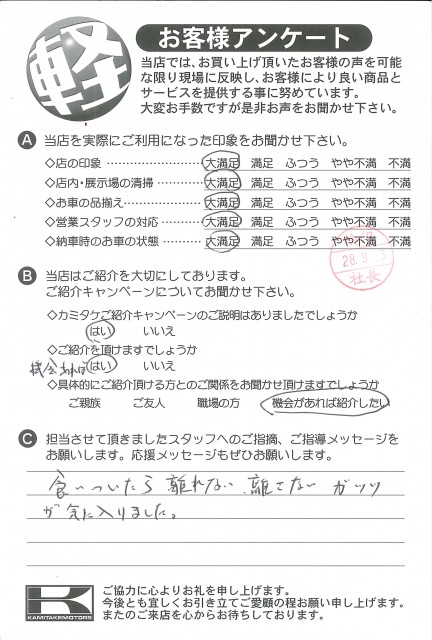 軽
お客様アンケート
当店では、お買い上げ頂いたお客様の声を可能
な限り現場に反映し、お客様により良い商品と
サービスを提供する事に努めています。
大変お手数ですが是非お声をお聞かせ下さい。
A 当店を実際にご利用になった印象をお聞かせ下さい。
◇店の印象 …………………… 大満足 満足 ふつう やや不満 不満
◇店内・展示場の清掃 ………… 大満足 満足 ふつう やや不満 不満
◇お車の品揃え ……………… 大満足 満足 ふつう やや不満 不満
◇営業スタッフの対応 ………… 大満足 満足 ふつう やや不満 不満
◇納車時のお車の状態 ………… 大満足 満足 ふつう やや不満 不満
28.9.
社長
B 当店はご紹介を大切にしております。
ご紹介キャンペーンについてお聞かせ下さい。
◇カミタケご紹介キャンペーンのご説明はありましたでしょうか
はい いいえ
◇ご紹介を頂けますでしょうか
機会あれば はい いいえ
◇具体的にご紹介頂ける方とのご関係をお聞かせ頂けますでしょうか
ご親族 ご友人 職場の方 機会があれば紹介したい
C 担当させて頂きましたスタッフへのご指摘、ご指導メッセージを
お願いします。応援メッセージもぜひお願いします。
食いついたら離れない、離さない ガッツ
が気に入りました。
K
KAMITAKEMOTORS
ご協力に心よりお礼を申し上げます。
今後とも宜しくお引き立てご愛顧の程お願い申し上げます。
またのご来店を心からお待ちしております。